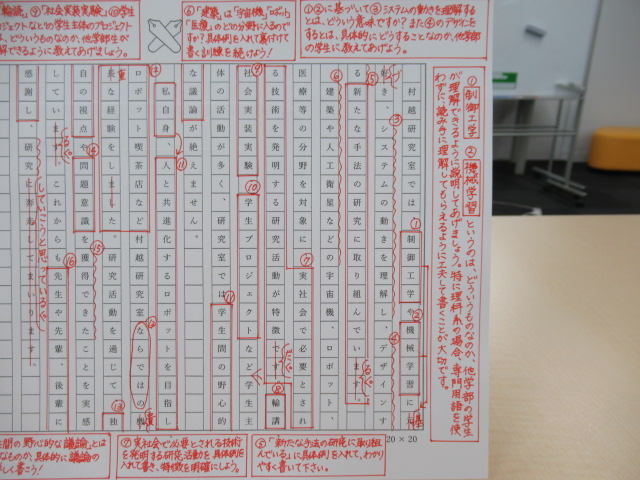 ①②に基づいて③システムの動きを理解す
るとは、どういう意味ですか?また④デザインを
するとは、具体的にどうすることなのか、他学部
の学生に教えてあげよう。
⑥「建築」は「宇宙機、ロボット」
「医療」のどの分野に入るので
すか?具体例を入れ裏付けて
書く訓練を続けよう!
輪読」⑨「社会実装実験」⑩学生
プロジェクトなどの学生主体のプロジェク
トとは、どういうものなのか、他学部生が
理解できるように教えてあげましょう。
①制御工学 ②機械学習というのは、どういうものなのか、他学部の学生
が理解できるように説明してあげましょう。特に理科系の場合、専門用語を使
わずに、読み手に理解してもらえるように工夫して書くことが大切です。
村越研究室では、制御工学や機械学習に
き、システムの動きを理解し、デザインす
る新たな手法の研究に取り組んでいます。
建築や人工衛星などの宇宙機、ロボット、
医療等の分野を対象に、実社会で必要とされ
る技術を発明する研究活動が特徴です。輪講
社会実装実験、学生プロジェクトなど学生主
体の活動が多く、研究室では学生間の野心的
な議論が絶えません。
私自身、人と共進化するロボットを目指し
ロボット喫茶店など村越研究室ならではの貴
重な経験をしました。研究活動を通じて、独
自の視点や問題意識を獲得できたことを実感
しています。これからも先生や先輩、後輩に
感謝し、研究に邁進してまいります。
していこうと思っている
20×20
⑤「新たな手法の研究に取り組
んでいる」に具体例を入れて、わかり
やすく書いて下さい。
⑦実社会で必要とされる技術
を発明する研究活動を具体例
を入れて書き、特徴を明確にしよう。
間の野心的な「議論」とは
なものか、具体的に議論の
しく書こう!